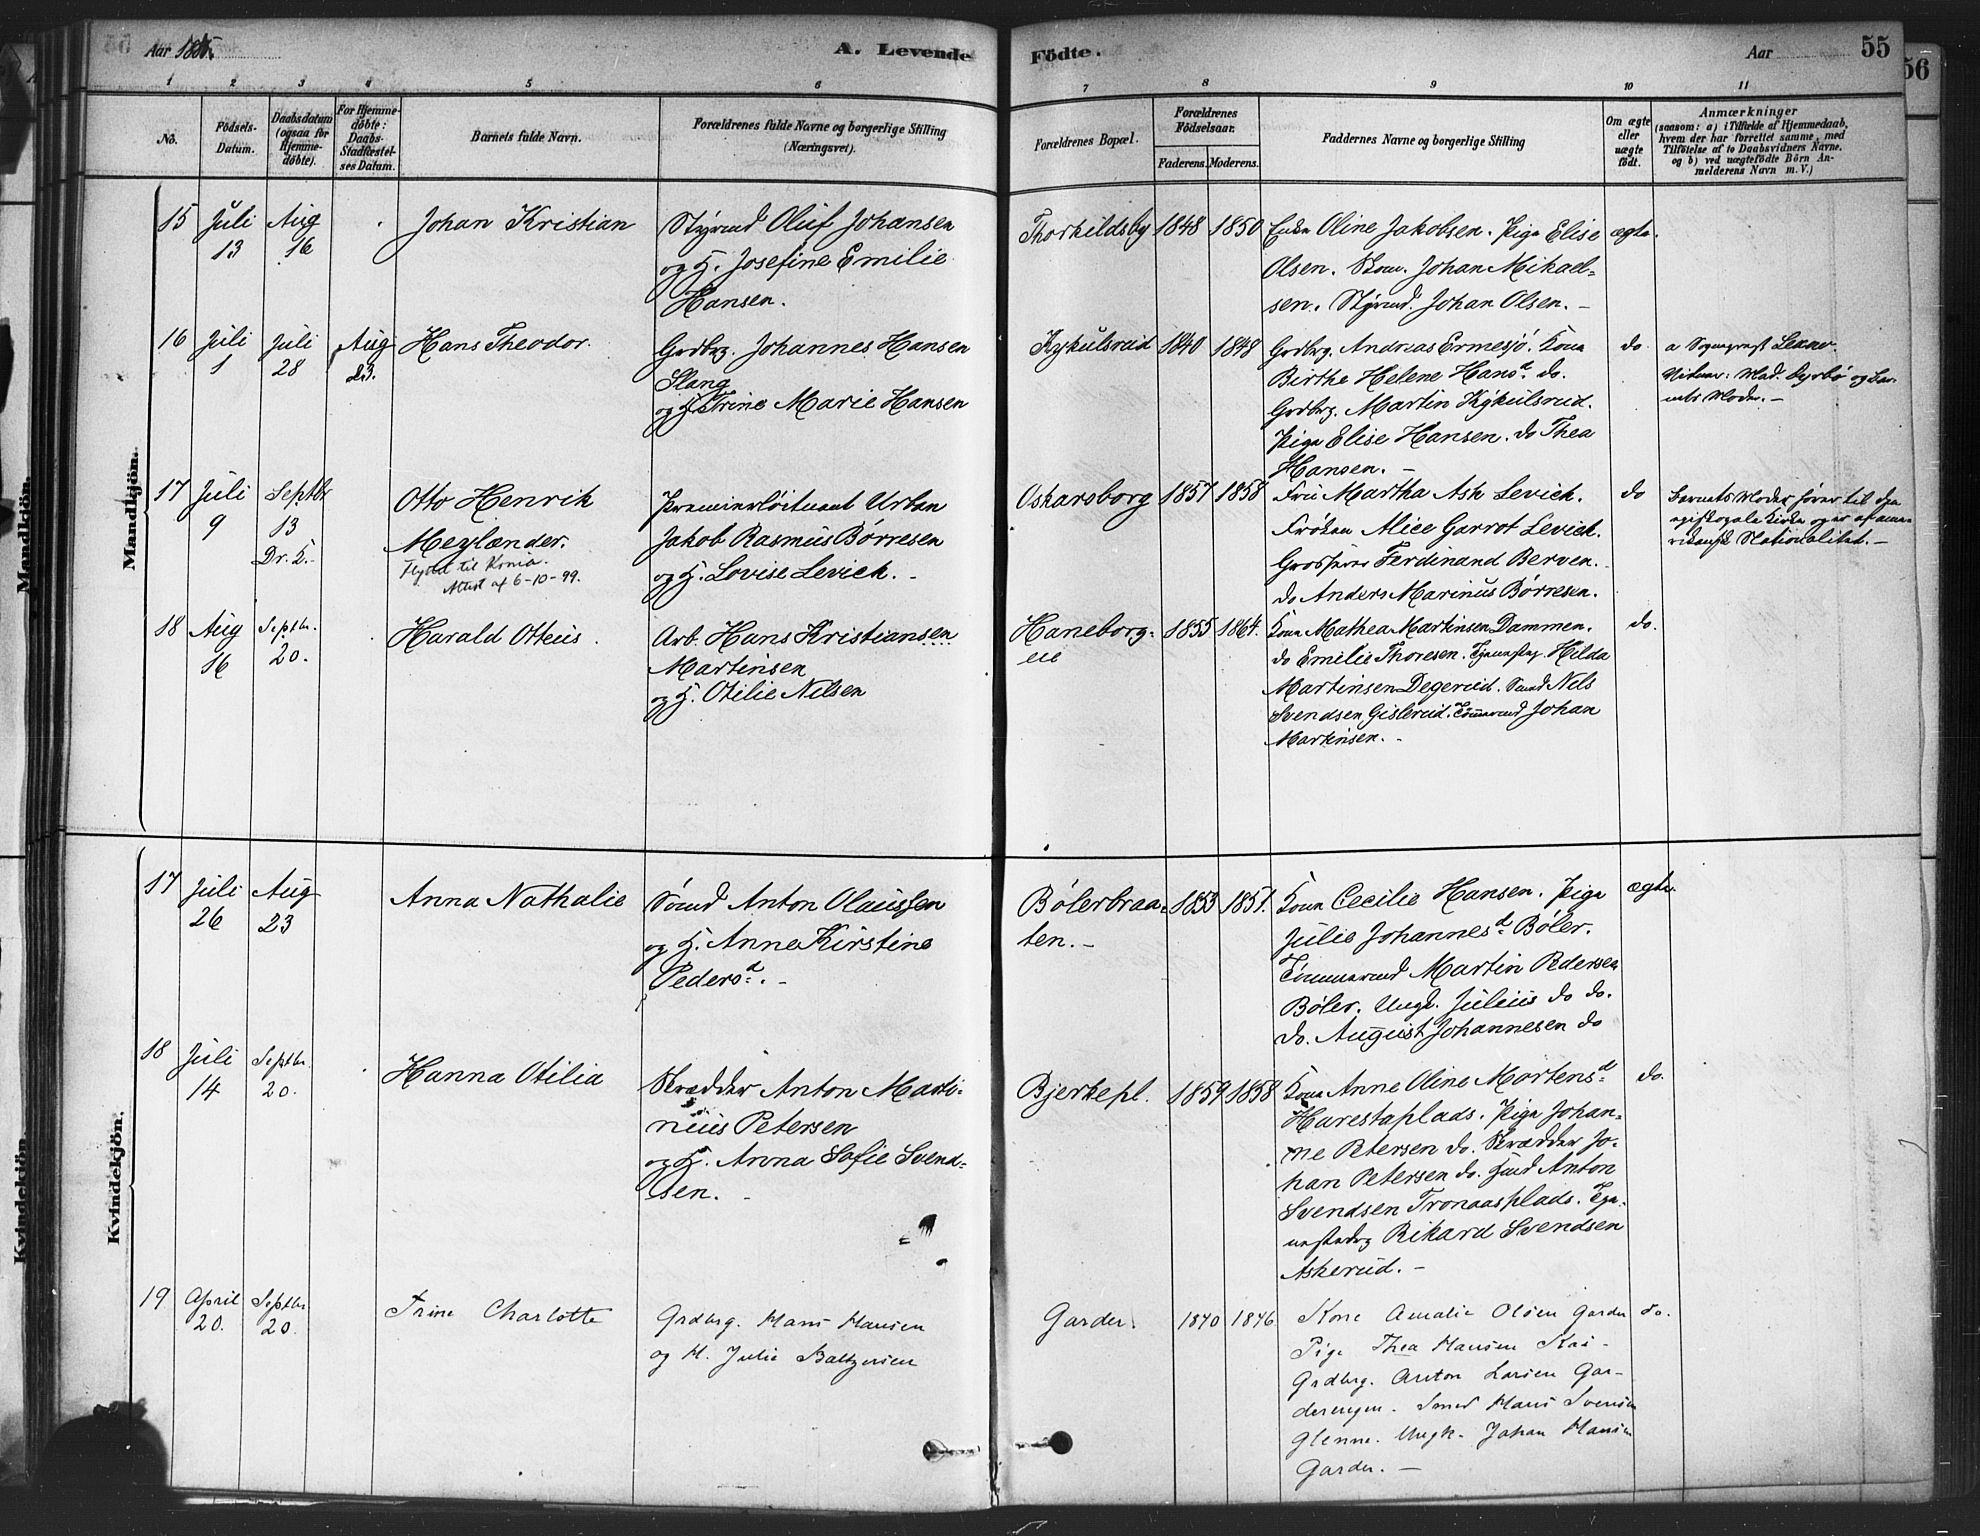 Aar 1885.
A. Levende
Födte.
Aar
55
56
1 2 3 4 5 6 7 8 9 10 11
No.
Födsels-
Datum.
Daabsdatum
(ogsaa for
Hjemme-
döbte).
For Hjemme-
döbte:
Daabs-
Stadfæstel-
ses Datum.
Barnets fulde Navn.
Forældrenes fulde Navne og borgerlige Stilling
(Næringsvei).
Forældrenes Bopæl.
Forældrenes
Födselsaar.
Faderens. Moderens.
Faddernes Navne og borgerlige Stilling
Om ægte
eller
uægte
födt.
Anmærkninger
(saasom: a) i Tilfælde af Hjemmedaab,
hvem der har forrettet samme, med
Tilföielse af to Daabsvidners Navne,
og b) ved uægtefödte Börn An-
melderens Navn m. V.)
Mandkjön.
15
Juli
13
Aug
16
Johan Kristian
Styrmd Oluf Johansen
og H. Josefine Emilie
Hansen.
Thorkildsby
1848 1850
Enke Oline Jakobsen. Pige Elise
Olsen. Skom. Johan Mikael-
sen. Styrmd. Johan Olsen. –
ægte.
16
Juli
1
Juli
28
Aug
23.
Hans Theodor.
Grdbrg. Johannes Hansen
Slang
og H. Trine Marie Hansen
Kykulsrud
1840 1848
Grdbrg. Andreas Ermesjö. Kona
Birthe Helene Hansd. do.
Grdbrg. Martin Kykulsrud.
Pige Elise Hansen. do Thea
Hansen. –
do.
17
Juli
9
Septbr
13
Dr. K.
Otto Henrik
Meylænder.
Flyttet til Krnia.
Attest af 6-10-99.
Premierløitnant Urban
Jakob Rasmus Børresen
og H. Lovise Levick. –
Oskarsborg
1857 1858
Frü Martha Ash Levick.
Frøken Alice Garrot Levick.
Grosserer Ferdinand Berven.
do Anders Marinus Børresen.
do
Barnets Moder hører til den
episkopale Kirke og er af ame-
rikansk Nationalitet. –
18
Aug
16
Septbr.
20.
Harald Otteus.
Arb. Hans Kristiansen
Martinsen
og H. Otilie Nilsen
Haneborg-
eie
1855 1864.
Kona Mathea Martinsen Dammen.
do Emilie Thoresen. Hilda
Martinsen Degerud. Sømd Nels
Svendsen Gislerud. Tømmermd Johan
Martinsen. –
do.
Kvindekjön.
17
Juli
26
Aug
23
Anna Nathalie
Sømd Anton Olaussen
og H. Anne Kirstine
Pedersd. –
Bølerbraa-
ten. –
1853 1851.
Kona Cecilie Hansen. Pige
Julie Johannesd Bøler.
Tømmermd Martin Pedersen
Bøler. Ungk. Julius do do.
do. August Johannesen do
ægte.
18
Juli
14
Septbr.
20.
Hanna Otilia
Skrædder Anton Marti-
nius Petersen
og H. Anna Sofie Svend-
sen. –
Bjerkepl.
1859 1858
Kona Anne Oline Mortensd
Harestaplads. Pige Johan-
ne Petersen do. Skrædder Jo-
han Petersen do. Anton
Svendsen Tronaasplads.
Rikard Svendsen
Askerud. –
do.
19
April
20.
Septbr
20.
Trine Charlotte
Grdbrg. Hans Hansen
og H. Julie Baltzersen
Garder.
1840 1846
Kone Amalie Olsen Garder
Pige Thea Hansen Kas-
Grdbrg. Anton Larsen Gar-
derengen. Smed Hans Svensen
Glenne. Ungk. Johan Hansen
Garder. –
do.